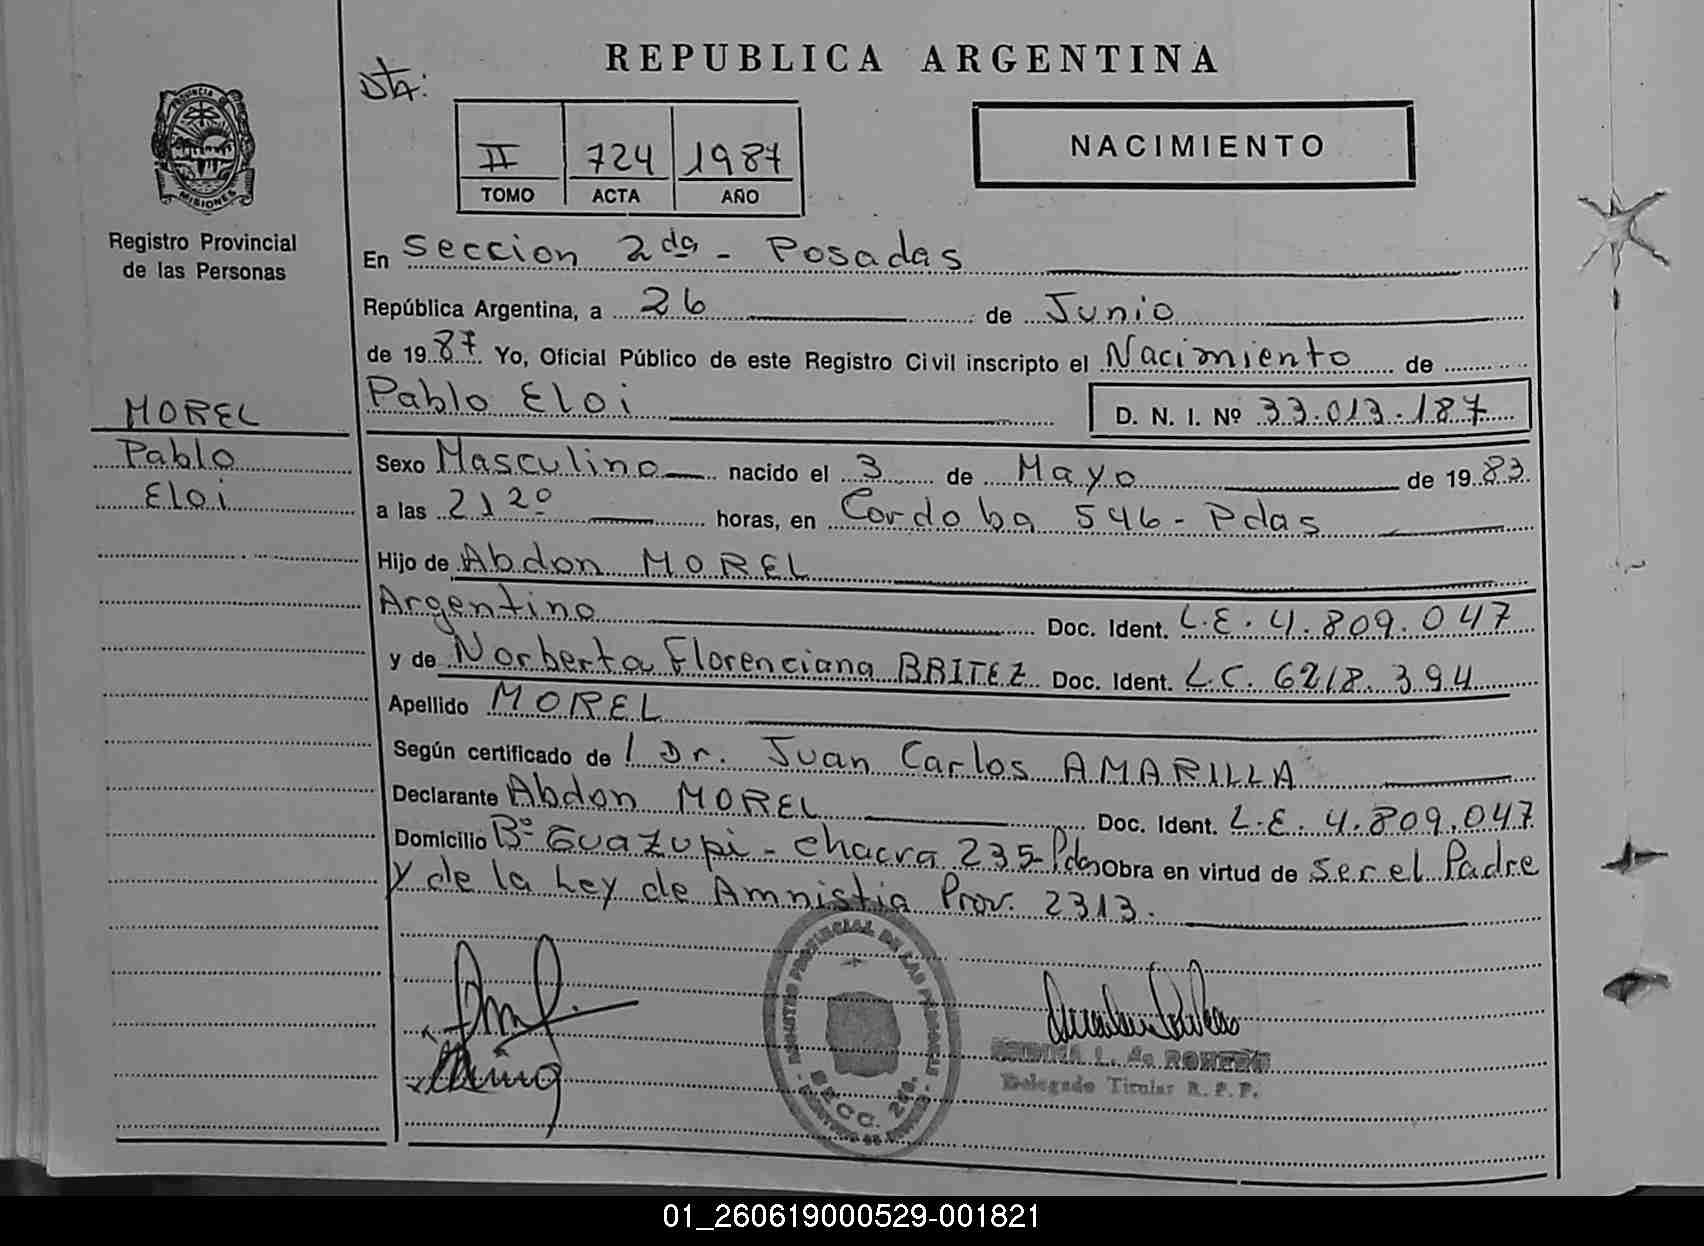 REPUBLICA ARGENTINA
Dta:
PROVINCIA DE
MISIONES
II 724 1987
TOMO ACTA AÑO
NACIMIENTO
Registro Provincial
de las Personas
En Seccion 2da - Posadas
República Argentina, a 26 de Junio
de 1987 Yo, Oficial Público de este Registro Civil inscripto el Nacimiento de
Pablo Eloi D. N. I. Nº 33.013.187
MOREL
Pablo
Eloi
Sexo Masculino nacido el 3 de Mayo de 1983
a las 21 20 horas, en Cordoba 546 - Pdas
Hijo de Abdon MOREL
Argentino Doc. Ident. L.E. 4.809.047
y de Norberta Florenciana BRITEZ Doc. Ident. L.C. 6218.394
Apellido MOREL
Según certificado de l Dr. Juan Carlos AMARILLA
Declarante Abdon MOREL Doc. Ident. L.E. 4.809.047
Domicilio Bº Guazupi - chacra 235- Pdas Obra en virtud de ser el Padre
y de la Ley de Amnistia Prov. 2313.
REGISTRO PROVINCIAL DE LAS PERSONAS
SECC. 2da.
L. de ROMERO
Delegado Titular R. P. P.
01_260619000529-001821